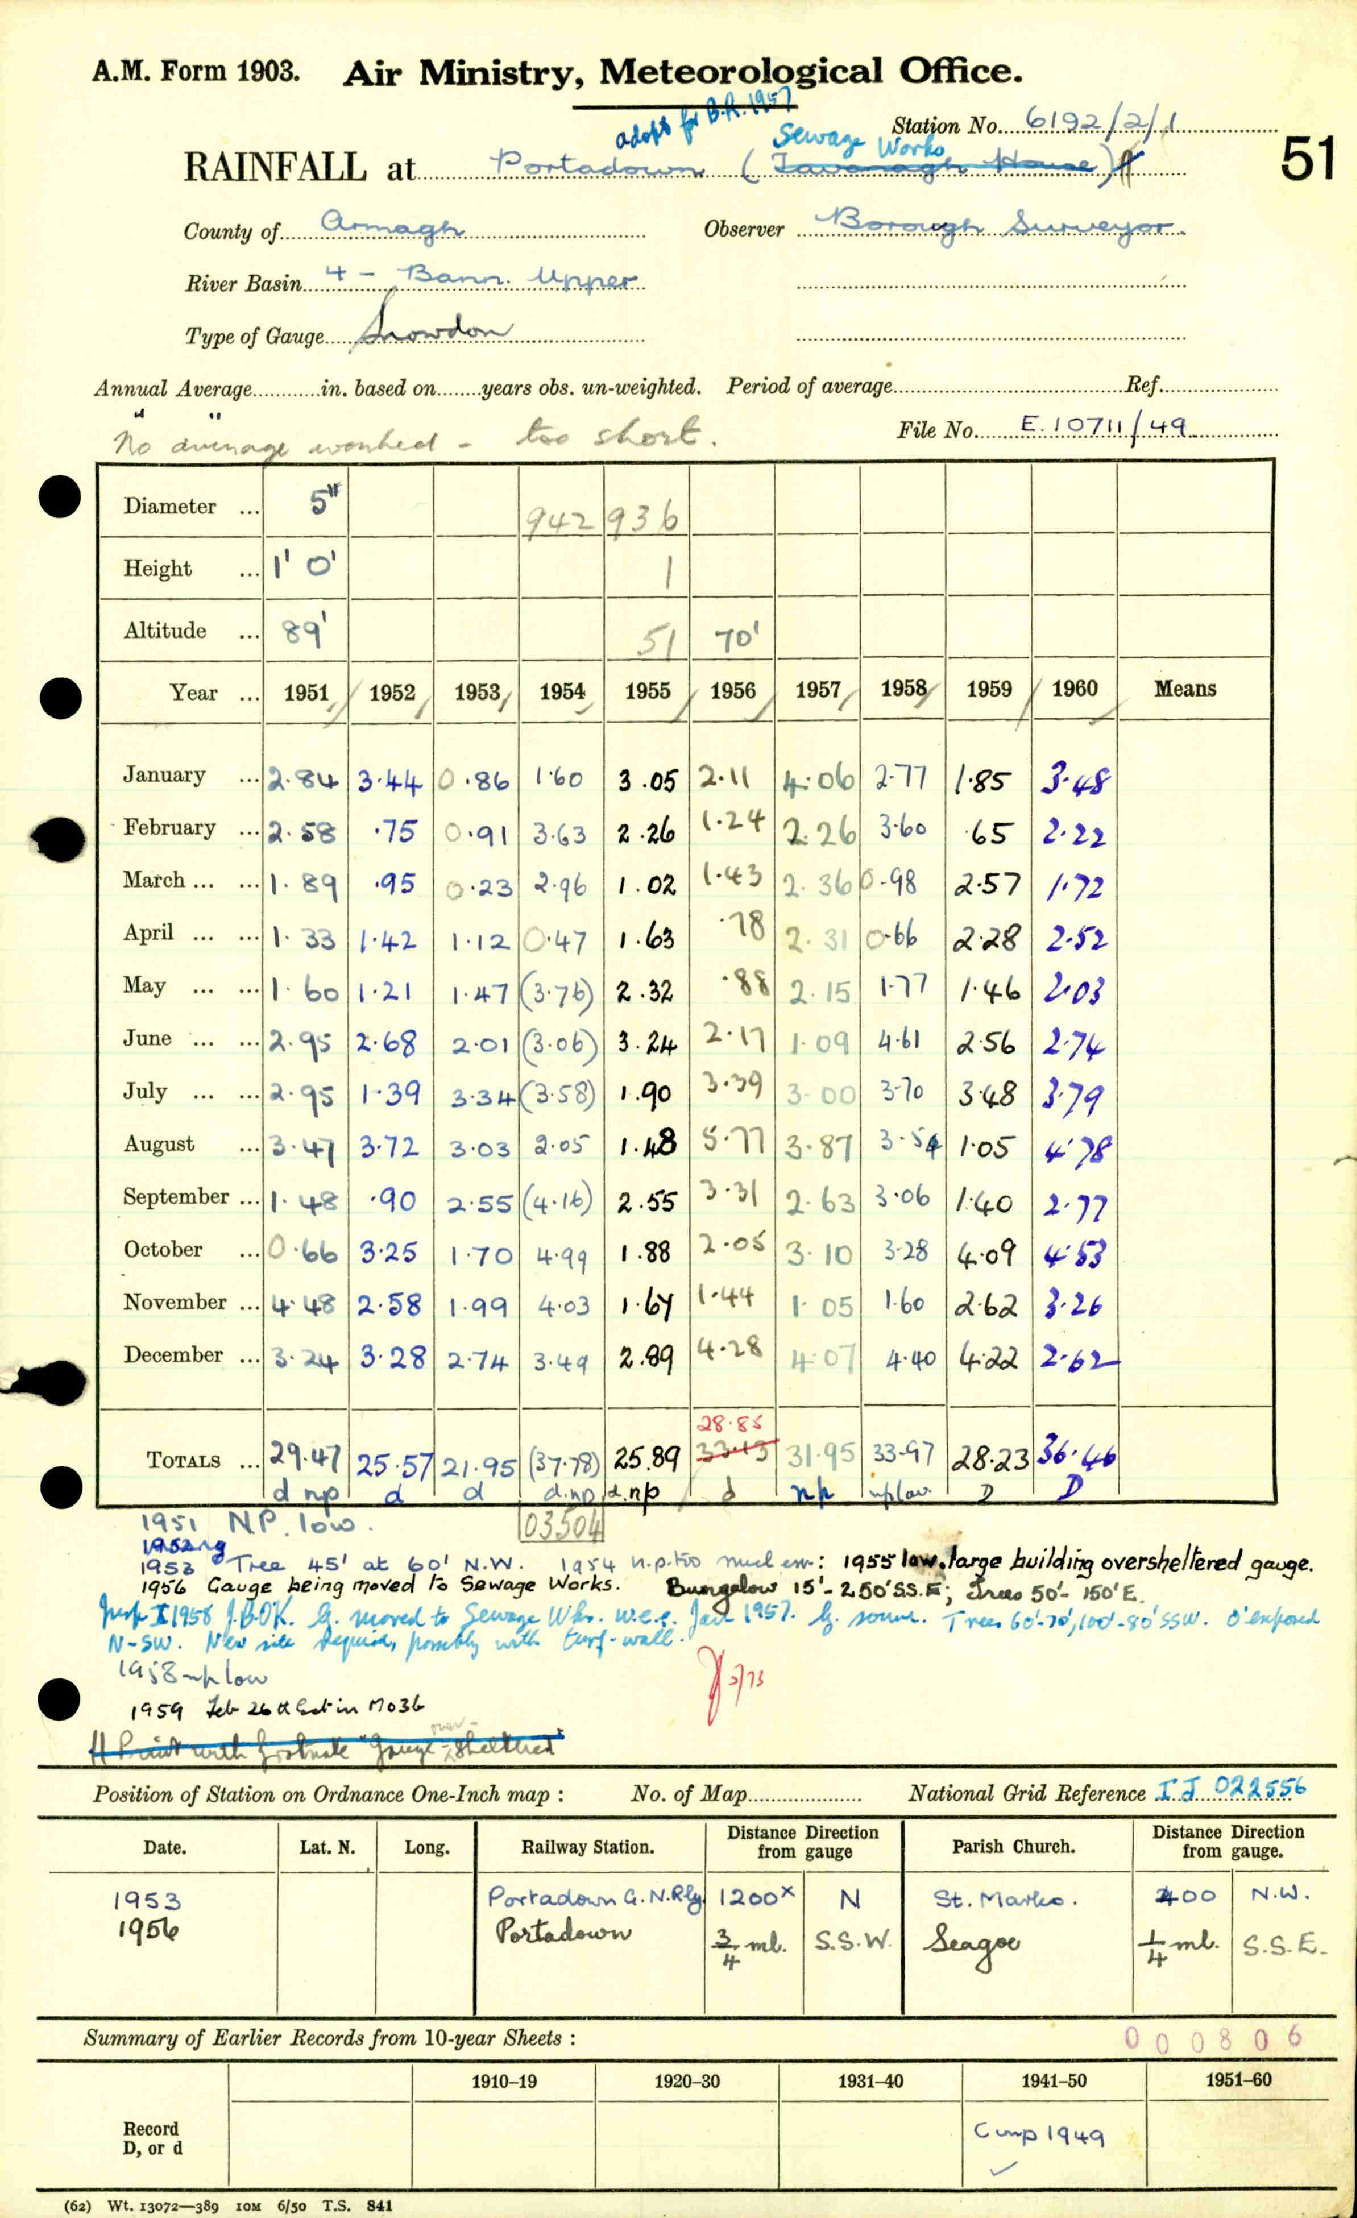 A.M. Form 1903. Air Ministry, Meteorological Office.
adopt for B.R. 1957
Station No. 6192/2/1
51
Sewage Works
RAINFALL at Portadown (Tavanagh House)
County of Armagh Observer Borough Surveyor.
River Basin 4 - Bann. Upper
Type of Gauge Snowdon
Annual Average in. based on years obs. un-weighted. Period of average Ref.
No average worked - too short.
File No. E.10711/49
Diameter ... 5" 942 936
Height ... 1' 0' 1
Altitude ... 89' 51 70'
Year ... 1951 1952 1953 1954 1955 1956 1957 1958 1959 1960 Means
January ... 2.84 3.44 0.86 1.60 3.05 2.11 4.06 2.77 1.85 3.48
February ... 2.58 .75 0.91 3.63 2.26 1.24 2.26 3.60 .65 2.22
March ... ... 1.89 .95 0.23 2.96 1.02 1.43 2.36 0.98 2.57 1.72
April ... ... 1.33 1.42 1.12 0.47 1.63 .78 2.31 0.66 2.28 2.52
May ... ... 1.60 1.21 1.47 (3.76) 2.32 .88 2.15 1.77 1.46 2.03
June ... ... 2.95 2.68 2.01 (3.06) 3.24 2.17 1.09 4.61 2.56 2.74
July ... ... 2.95 1.39 3.34 (3.58) 1.90 3.39 3.00 3.70 3.48 3.79
August ... 3.47 3.72 3.03 2.05 1.48 5.77 3.87 3.54 1.05 4.78
September ... 1.48 .90 2.55 (4.16) 2.55 3.31 2.63 3.06 1.40 2.77
October ... 0.66 3.25 1.70 4.99 1.88 2.05 3.10 3.28 4.09 4.53
November ... 4.48 2.58 1.99 4.03 1.67 1.44 1.05 1.60 2.62 3.26
December ... 3.24 3.28 2.74 3.49 2.89 4.28 4.07 4.40 4.22 2.62
28.85
TOTALS ... 29.47 25.57 21.95 (37.78) 25.89 33.13 31.95 33.97 28.23 36.46
d np d d d.np d.np d np np low D D
1951 N.P. low. 03504
1952 ng
1953 Tree 45' at 60' N.W. 1954 n.p. too much em: 1955 low, large building oversheltered gauge.
1956 Gauge being moved to Sewage Works. Bungalow 15'-250' SS.E; Trees 50'-150' E.
Insp I 1958 J.B.O'K. G. moved to Sewage Wks. w.e.f. Jan 1957. G. sound. Trees 60'-70', 100'-80' SSW. O'exposed
N-SW. New site required, possibly with turf-wall.
1958 np low
2/73
1959 Feb 26th Est in MO3b
over-
Print with footnote "Gauge sheltered"
Position of Station on Ordnance One-Inch map : No. of Map National Grid Reference IJ 022556
Date. Lat. N. Long. Railway Station. Distance from Direction gauge Parish Church. Distance from Direction gauge.
1953 Portadown G.N.Rly. 1200x N St. Marks. 400 N.W.
1956 Portadown 3/4 ml. S.S.W. Seagoe 1/4 ml. S.S.E.
Summary of Earlier Records from 10-year Sheets : 000806
1910–19 1920–30 1931–40 1941–50 1951–60
Record
D, or d
Cmp 1949
(62) Wt. 13072—389 10M 6/50 T.S. 841